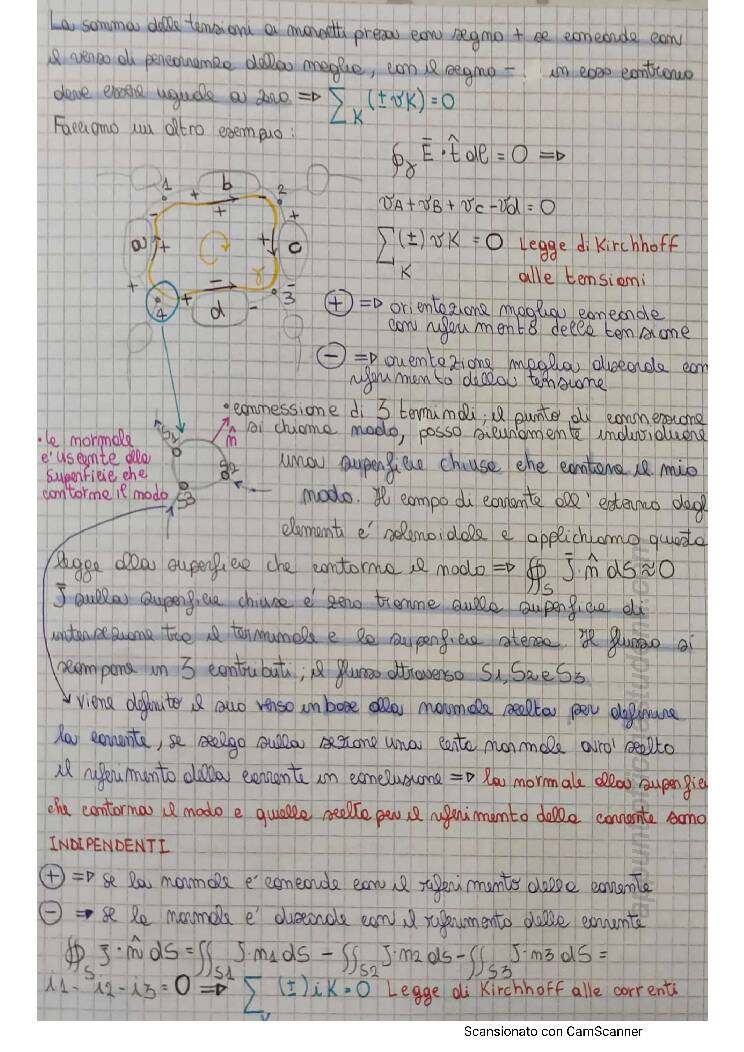 La somma delle tensioni ai morsetti presa con segno + se concorde con
il verso di percorrenza della maglia, con il segno - in caso contrario
deve essere uguale a zero => ∑K (±vK) = 0
Facciamo un altro esempio:
∮γ Ē · t̂ dl = 0 =>
vA + vB + vC - vd = 0
∑K (±) vK = 0 Legge di Kirchhoff
alle tensioni
1 b 2
a c
4 d 3
γ
(+) => orientazione maglia concorde
con riferimento della tensione
(-) => orientazione maglia discorde con
riferimento della tensione
• connessione di 3 terminali; il punto di connessione
si chiama nodo, posso sicuramente individuare
una superficie chiusa che contiene il mio
nodo. Il campo di corrente all'esterno degli
elementi è solenoidale e applichiamo questa
n̂
• la normale
è uscente alla
superficie che
contorna il nodo
S1
S2
S3
legge alla superficie che contorna il nodo => ∯S J̄ · n̂ dS ≈ 0
J̄ sulla superficie chiusa è zero tranne sulla superficie di
intersezione tra il terminale e la superficie stessa. Il flusso si
scompone in 3 contributi; il flusso attraverso S1, S2 e S3
viene definito il suo verso in base alla normale scelta per definire
la corrente, se scelgo sulla sezione una certa normale avrò scelto
il riferimento della corrente in conclusione => la normale alla superficie
che contorna il nodo e quella scelta per il riferimento della corrente sono
INDIPENDENTI
(+) => se la normale è concorde con il riferimento della corrente
(-) => se la normale è discorde con il riferimento della corrente
∯S J · n̂ dS = ∬S1 J · n1 dS - ∬S2 J · n2 dS - ∬S3 J · n3 dS =
i1 - i2 - i3 = 0 => ∑ (±) iK = 0 Legge di Kirchhoff alle correnti
Scansionato con CamScanner